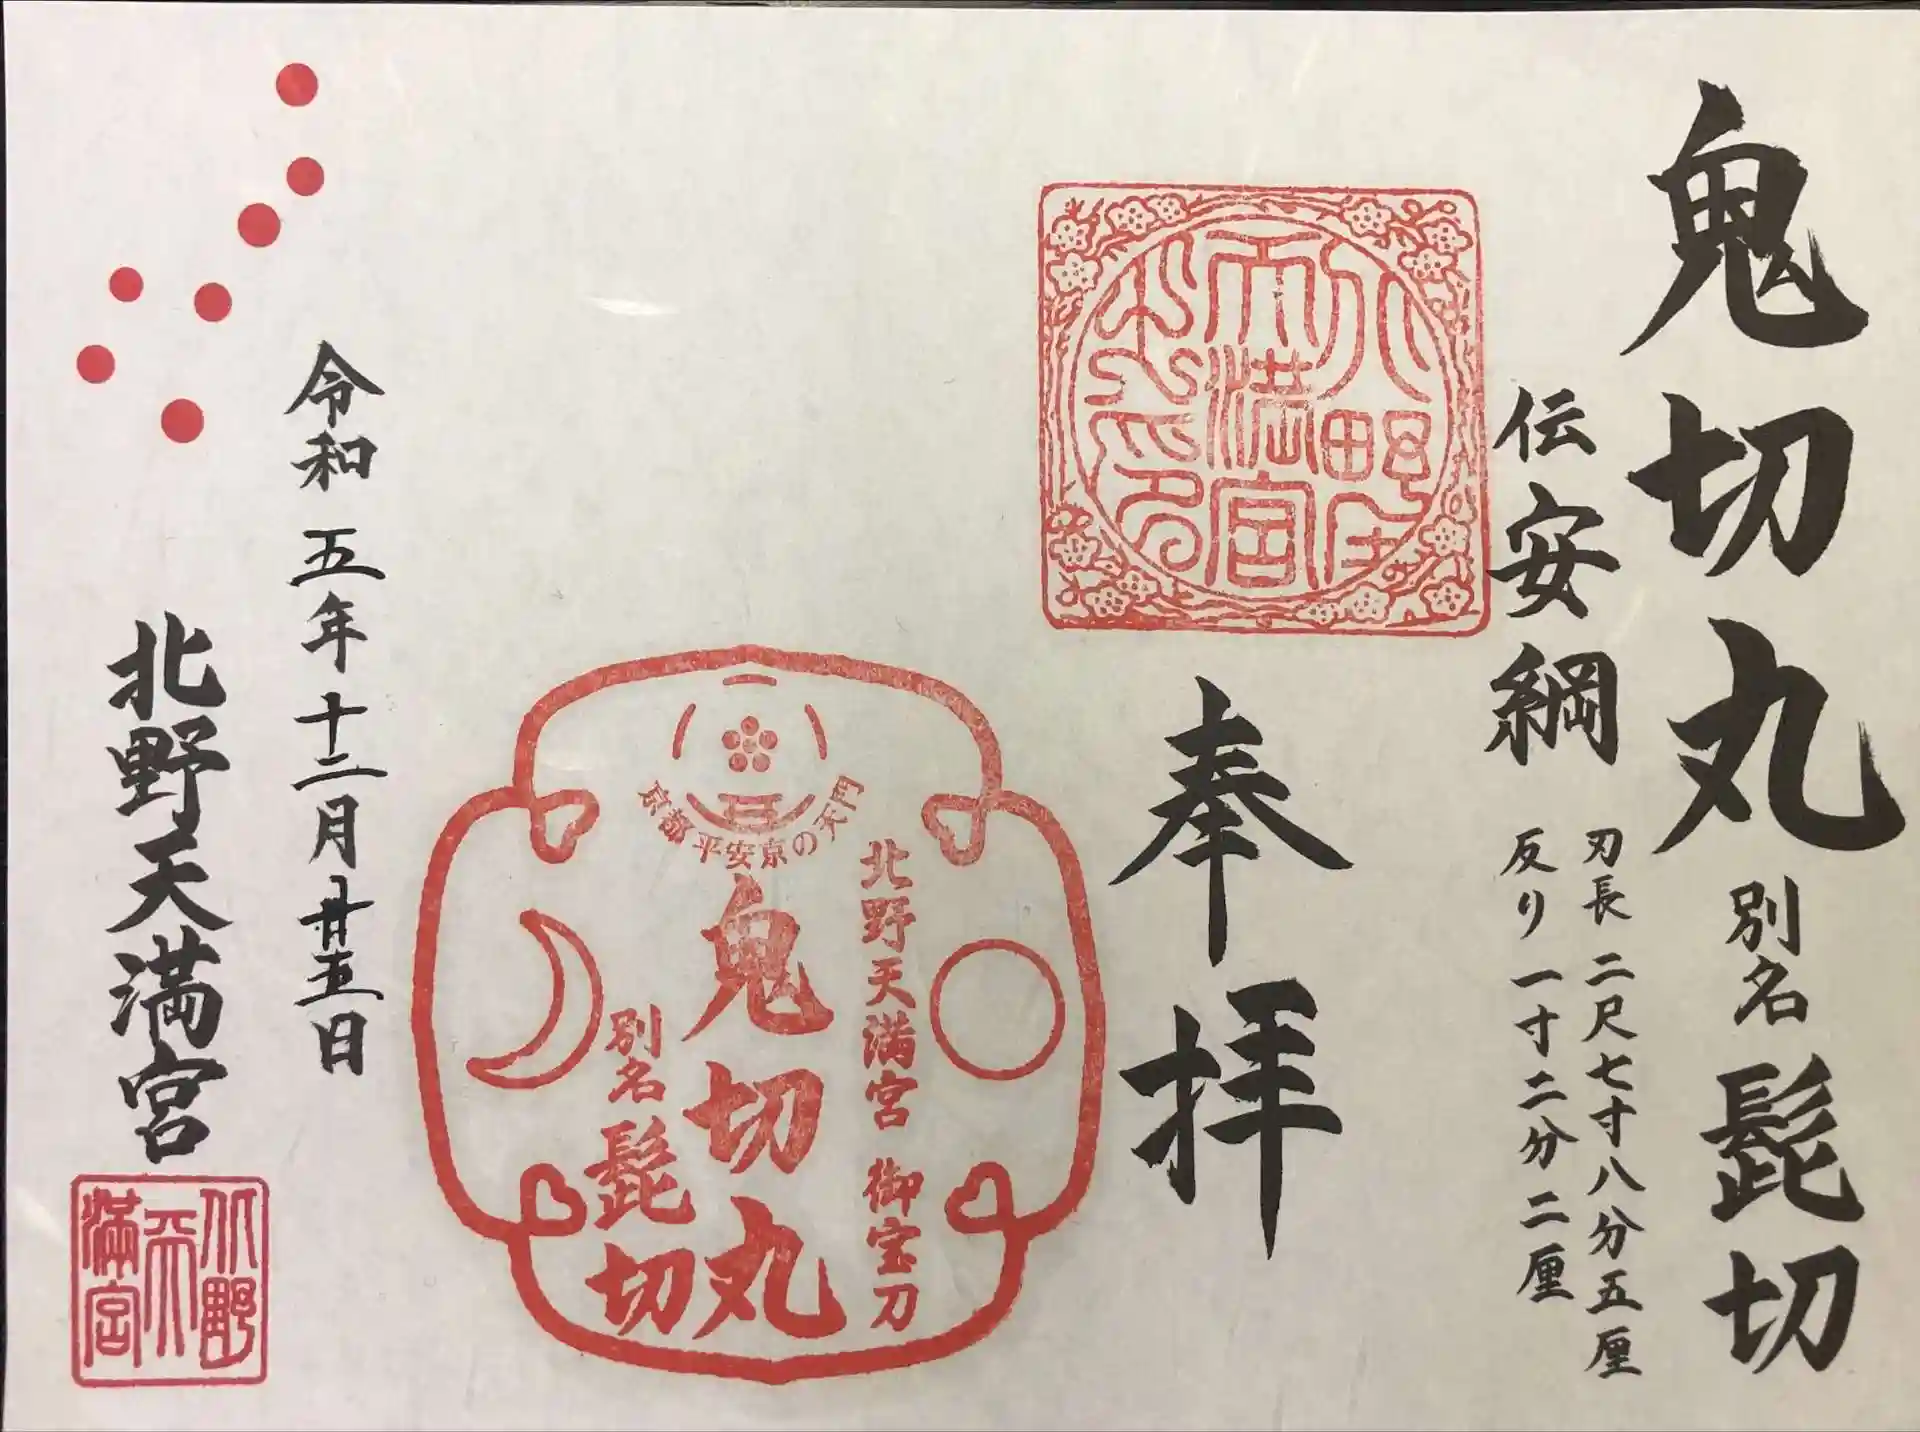 鬼切丸 別名 髭切
伝安綱
刃長 二尺七寸八分五厘
反り 一寸二分二厘
北野天満宮之印
奉拝
京都 平安京の天門
北野天満宮 御宝刀
鬼切丸
別名 髭切
令和五年十二月廿五日
北野天満宮
北野天満宮